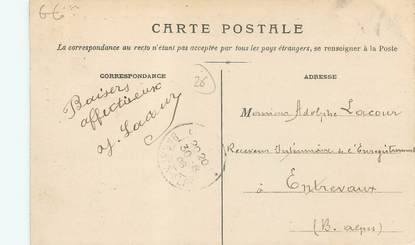 66
CARTE POSTALE
La correspondance au recto n'étant pas acceptée par tous les pays étrangers, se renseigner à la Poste
CORRESPONDANCE
26
ADRESSE
Baisers
affectueux
J. Lacour
Monsieur Adolphe Lacour
Receveur Intérimaire de l'Enregistrement
à Entrevaux
(B. alpes)